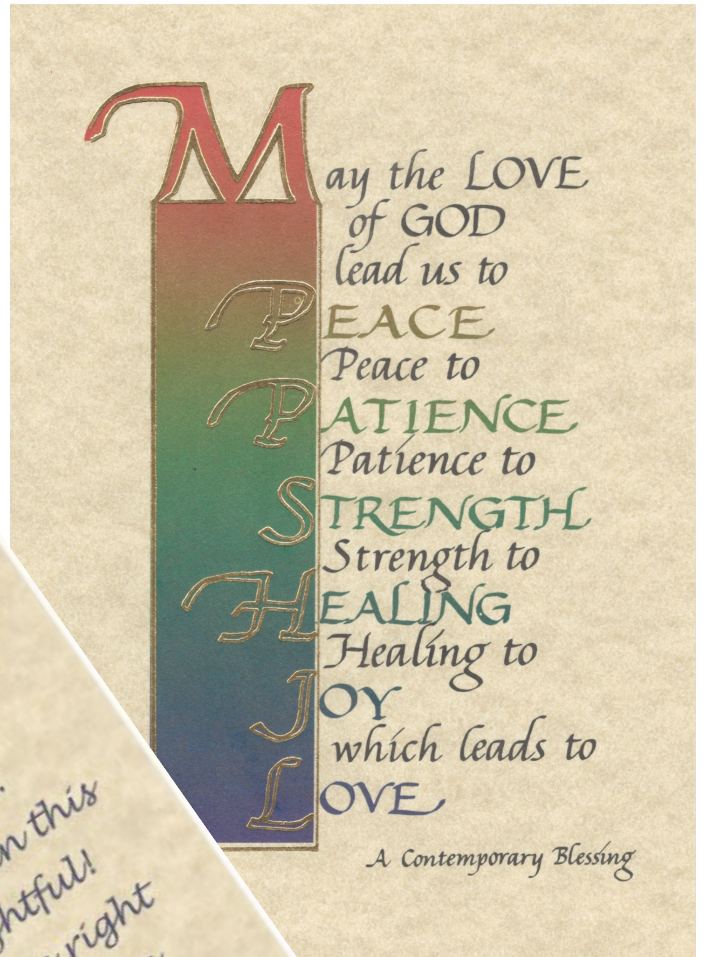 May the LOVE
of GOD
lead us to
PEACE
Peace to
PATIENCE
Patience to
STRENGTH
Strength to
HEALING
Healing to
JOY
which leads to
LOVE
A Contemporary Blessing
this
right